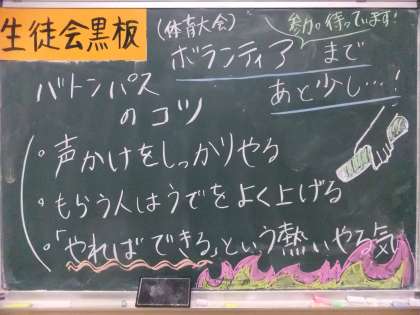 生徒会黒板
(体育大会)
参加。待っています!
ボランティア まで
あと少し…!
バトンパス
のコツ
・声かけをしっかりやる
・もらう人はうでをよく上げる
・「やればできる」という熱いやる気